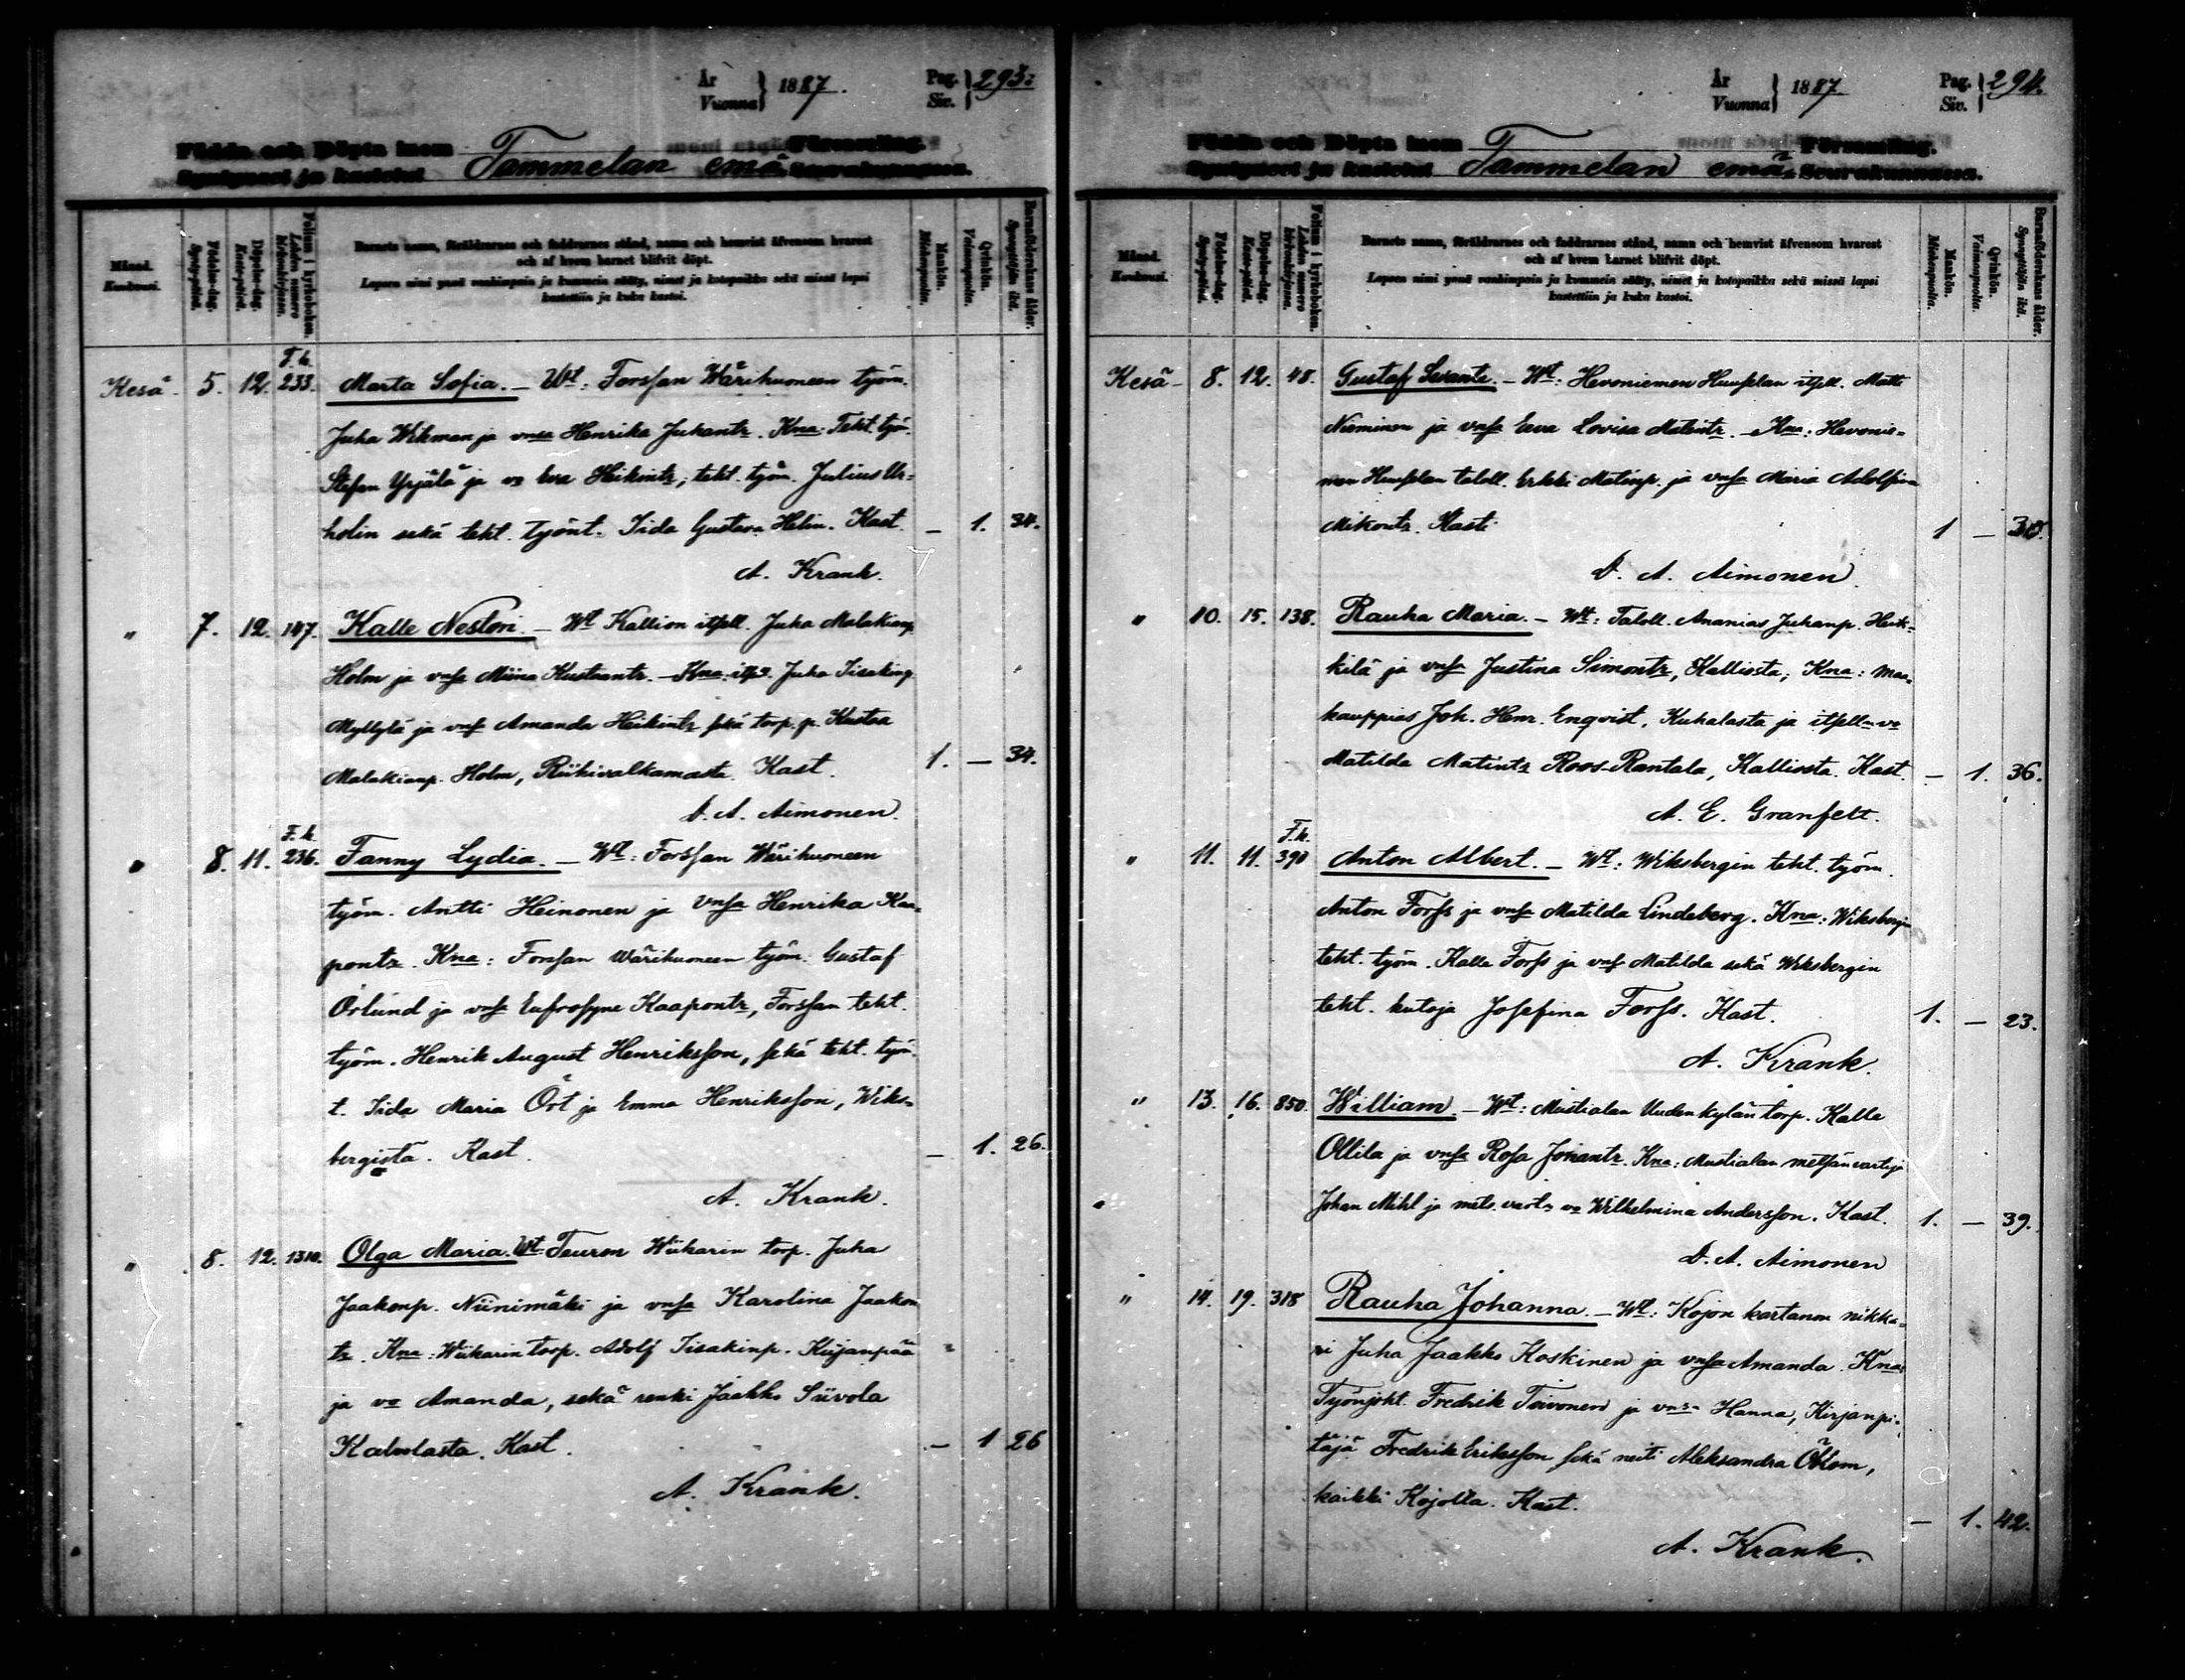 År
Vuonna } 1887.
Pag.
Siv. } 293.
Födda och Döpta inom Församling.
Syntyneet ja kastetut Tammelan emä Seurakunnassa.
Månad. Kuukausi.
Födelse-dag. Synty-päivä.
Döpelse-dag. Kaste-päivä.
Folium i kyrkoboken. Lehden numero kirkonkirjassa.
Barnets namn, föräldrarnes och faddrarnes stånd, namn och hemvist äfvensom hvarest
och af hvem barnet blifvit döpt.
Lapsen nimi ynnä vanhimpain ja kummein sääty, nimet ja kotopaikka sekä missä lapsi
kastettiin ja kuka kastoi.
Mankön. Miehenpuolta.
Qvinkön. Vaimonpuolta.
Barnaföderskans ålder. Synnyttäjän ikä.
Kesä- 5. 12. F.k. 233. Marta Sofia. – Wt: Forssan Wärihuoneen työm.
Juha Wikman ja vnsa Henrika Juhantr. Kna: Teht. työ.
Stefan Yrjälä ja vo Eva Heikintr, teht. työm. Julius Ur-
holin sekä teht. työnt. Iida Gustava Helin. Kast. – 1. 34.
A. Krank.
" 7. 12. 147. Kalle Nestori. – Wt Kallion itsell. Juha Malakianp.
Holm ja vnsa Miina Kustaantr. – Kna: its. Juha Iisakinp.
Myllylä ja vnsa Amanda Heikintr sekä torp. p. Kustaa
Malakianp. Holm, Riihivalkamasta. Kast. 1. – 34.
D. A. Aimonen.
" 8. 11. F.k. 236. Fanny Lydia. – Wt: Forssan Wärihuoneen
työm. Antti Heinonen ja vnsa Henrika Kaa-
pontr. Kna: Forssan Wärihuoneen työm. Gustaf
Örlund ja vnsa Eufrosyne Kaapontr, Forssan teht.
työm. Henrik August Henriksson, sekä teht. työn-
t. Iida Maria Öst ja Emma Henriksson, Wiks-
bergistä. Kast. – 1. 26.
A. Krank.
" 8. 12. 1310. Olga Maria. Wt: Teuron Wiikarin torp. Juha
Jaakonp. Niinimäki ja vnsa Karolina Jaakon
tr. Kna: Wiikarin torp. Adolf Iisakinp. Kiijanpää
ja vo Amanda, sekä renki Jaakko Siivola
Kaukolasta. Kast. – 1 26
A. Krank.
År
Vuonna } 1887.
Pag.
Siv. } 294.
Födda och Döpta inom Församling.
Syntyneet ja kastetut Tammelan emä- Seurakunnassa.
Månad. Kuukausi.
Födelse-dag. Synty-päivä.
Döpelse-dag. Kaste-päivä.
Folium i kyrkoboken. Lehden numero kirkonkirjassa.
Barnets namn, föräldrarnes och faddrarnes stånd, namn och hemvist äfvensom hvarest
och af hvem barnet blifvit döpt.
Lapsen nimi ynnä vanhimpain ja kummein sääty, nimet ja kotopaikka sekä missä lapsi
kastettiin ja kuka kastoi.
Mankön. Miehenpuolta.
Qvinkön. Vaimonpuolta.
Barnaföderskans ålder. Synnyttäjän ikä.
Kesä- 8. 12. 48. Gustaf Levante. – Wt: Hevoniemen Huuslan itsell. Matti
Nieminen ja vnsa Eeva Lovisa Matintr. – Kna: Hevonie-
men Huuslan taloll. Erkki Matinp. ja vnsa Maria Adolfina
Mikontr. Kasti 1 –
D. A. Aimonen.
" 10. 15. 138. Rauha Maria. – Wt: Taloll. Ananias Juhanp. Heik-
kilä ja vnsa Justina Simontr, Kalliosta; Kna: Maa-
kauppias Joh. Henr. Enqvist, Kuhalasta ja itsell- vo
Matilda Matintr Roos-Rantala, Kalliosta. Kast. – 1. 36.
A. E. Granfelt.
" 11. 11. F.k. 390 Anton Albert. – Wt: Wiksbergin teht. työm.
Anton Forss ja vnsa Matilda Lindeberg. Kna: Wiksbergin
teht. työm. Kalle Forss ja vnsa Matilda sekä Wiksbergin
teht. kutoja Josefina Forss. Kast. 1. – 23.
A. Krank.
" 13. 16. 850. William. – Wt: Mustialan Uudenkylän torp. Kalle
Ollila ja vnsa Rosa Johantr. Kna: Mustialan metsänvartija
Johan Mihl ja mets. vart- vo Wilhelmina Andersson. Kast. 1. – 39.
D. A. Aimonen
" 14. 19. 318 Rauha Johanna. – Wt: Kojon kartanon nikka-
ri Juha Jaakko Koskinen ja vnsa Amanda. Kna:
Työnjoht. Fredrik Toivonen ja vnsa Hanna, Kirjanpi-
täjä Fredrik Eriksson sekä neiti Aleksandra Öhlom,
kaikki Kojolta. Kast. – 1. 42.
A. Krank.